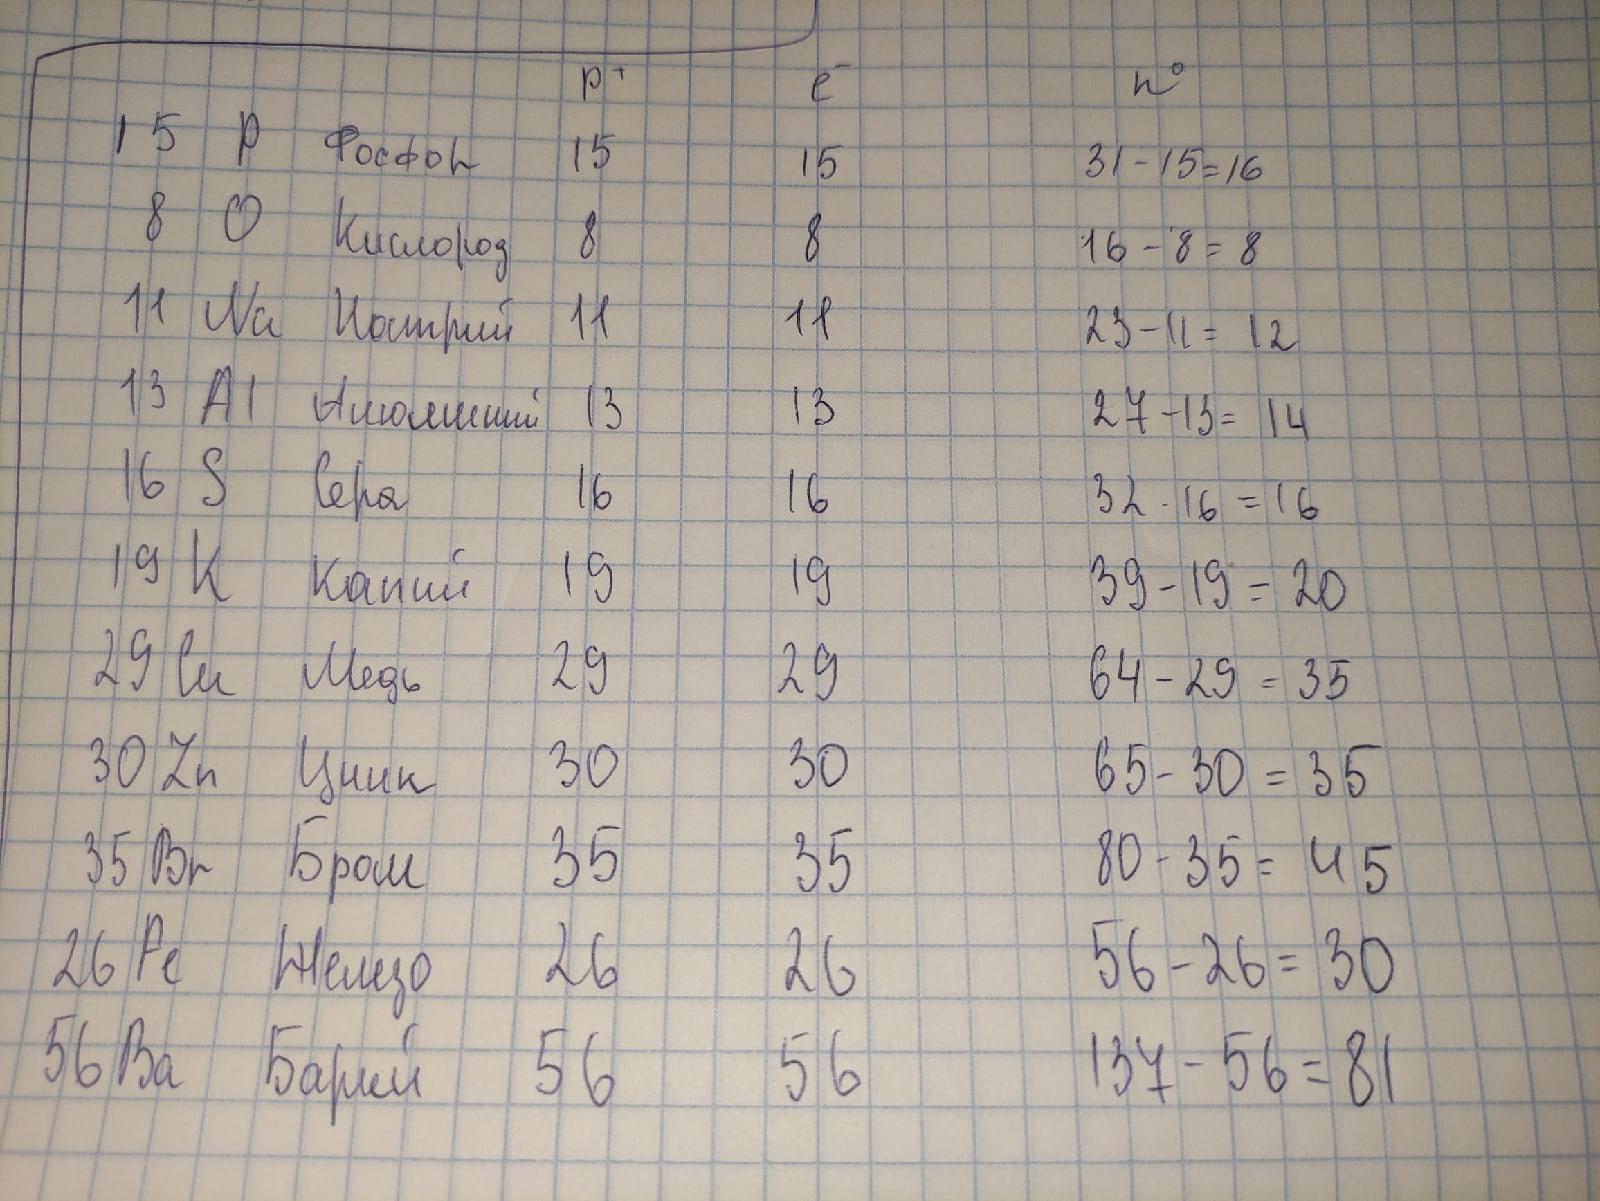 p⁺ e⁻ n⁰
15 P Фосфор 15 15 31-15=16
8 O Кислород 8 8 16-8=8
11 Na Натрий 11 11 23-11=12
13 Al Алюминий 13 13 27-13=14
16 S Сера 16 16 32-16=16
19 K Калий 19 19 39-19=20
29 Cu Медь 29 29 64-29=35
30 Zn Цинк 30 30 65-30=35
35 Br Бром 35 35 80-35=45
26 Fe Железо 26 26 56-26=30
56 Ba Барий 56 56 137-56=81